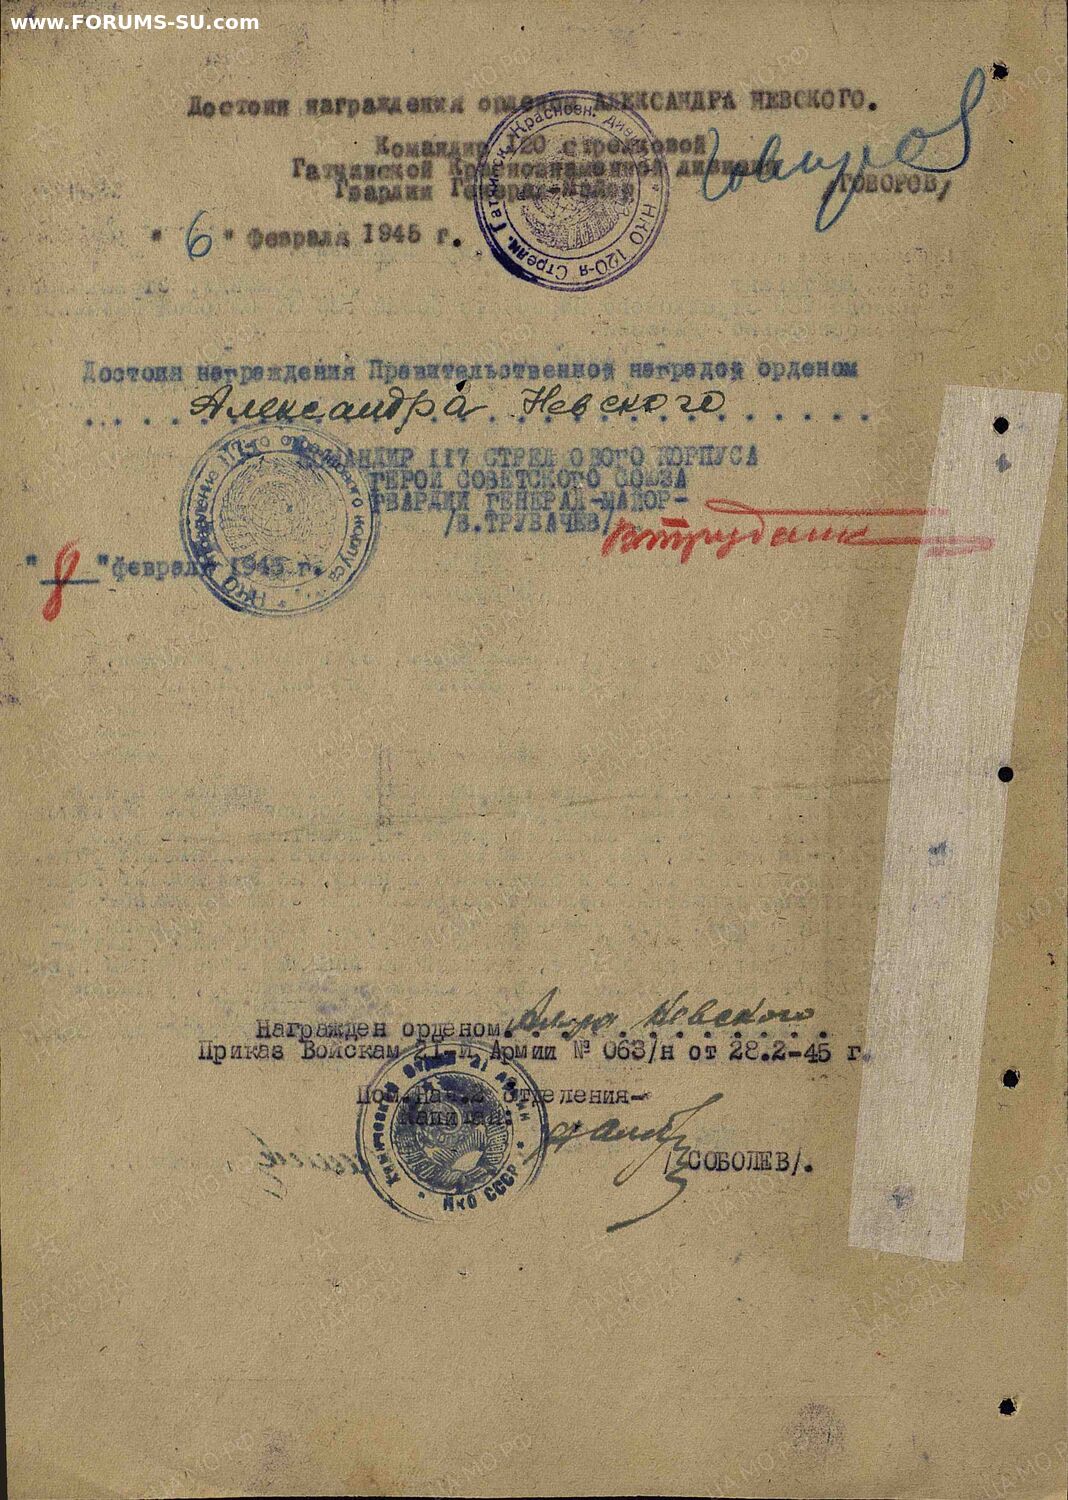 www.FORUMS-SU.com
Достоин награждения орденом АЛЕКСАНДРА НЕВСКОГО.
Командир 120 стрелковой
Гатчинской Краснознаменной дивизии
Гвардии Генерал-Майор
/ГОВОРОВ/
"6" февраля 1945 г.
НКО 120-я Стрелк. Гатчинск. Краснозн. Дивиз
Достоин награждения Правительственной наградой орденом
Александра Невского
КОМАНДИР 117 СТРЕЛКОВОГО КОРПУСА
ГЕРОЙ СОВЕТСКОГО СОЮЗА
ГВАРДИИ ГЕНЕРАЛ-МАЙОР-
/В.ТРУБАЧЕВ/
"8" февраля 1945 г.
НКО Управление 117-го стрелкового корпуса
Награжден орденом Ал-ра Невского
Приказ Войскам 21-й Армии № 063/н от 28.2-45 г.
Пом.Нач.2 отделения-
Капитан:
/СОБОЛЕВ/.
Химический отдел 21 Армии * НКО СССР *
ПАМЯТЬ НАРОДА
ЦАМО.РФ